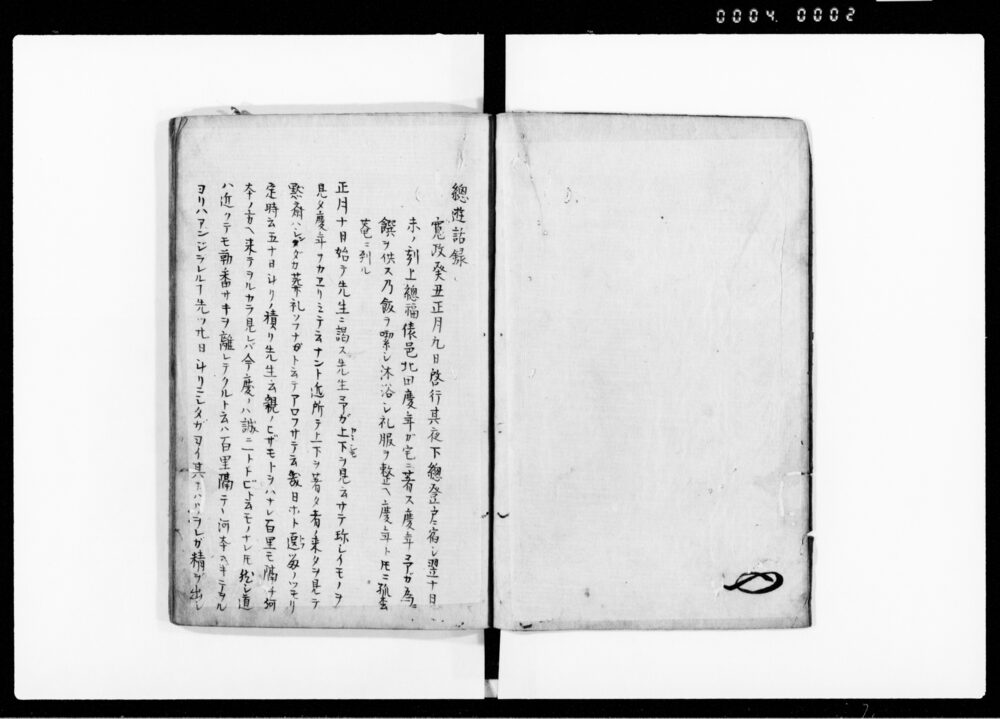 0004 0002
總遊話録
寛政癸丑正月九日啓行其夜下總登戸ニ宿シ翌十日
未ノ刻上總福俵邑北田慶年ガ宅ニ著ス慶年ヨアガ為ニ
饌ヲ供ス乃飯ヲ喫シ沐浴シ礼服ヲ整ヘ慶年ト氏ニ孤松
菴ニ到ル
正月十日始テ先生ニ謁ス先生ヨアガ上下ヲ見云サテ珍シイモノヲ
見タ慶年ヲカヱリミテ云ナント近所テ上下ヲ著タ者ノ来タヲ見テ
黙斎ハ 葬礼ソフナガト云テアロフサテ云幾日ホト逗留ノツモリ
定時云五十日斗リノ積リ先生云親ノヒザモトヲハナレ百里モ隔チ何
本ノ方ヘ来テヲルカラ見レバ今度ハ誠ニ一トトビト云モノナレ氏然シ道
ハ近クテモ勤番サキヲ離レテクルト云ハ百里隔テ河本ヘキテヲル
ヨリハアンジラレルヿ先ツ廿日斗リニシタガヨイ其 精ヲ出シ